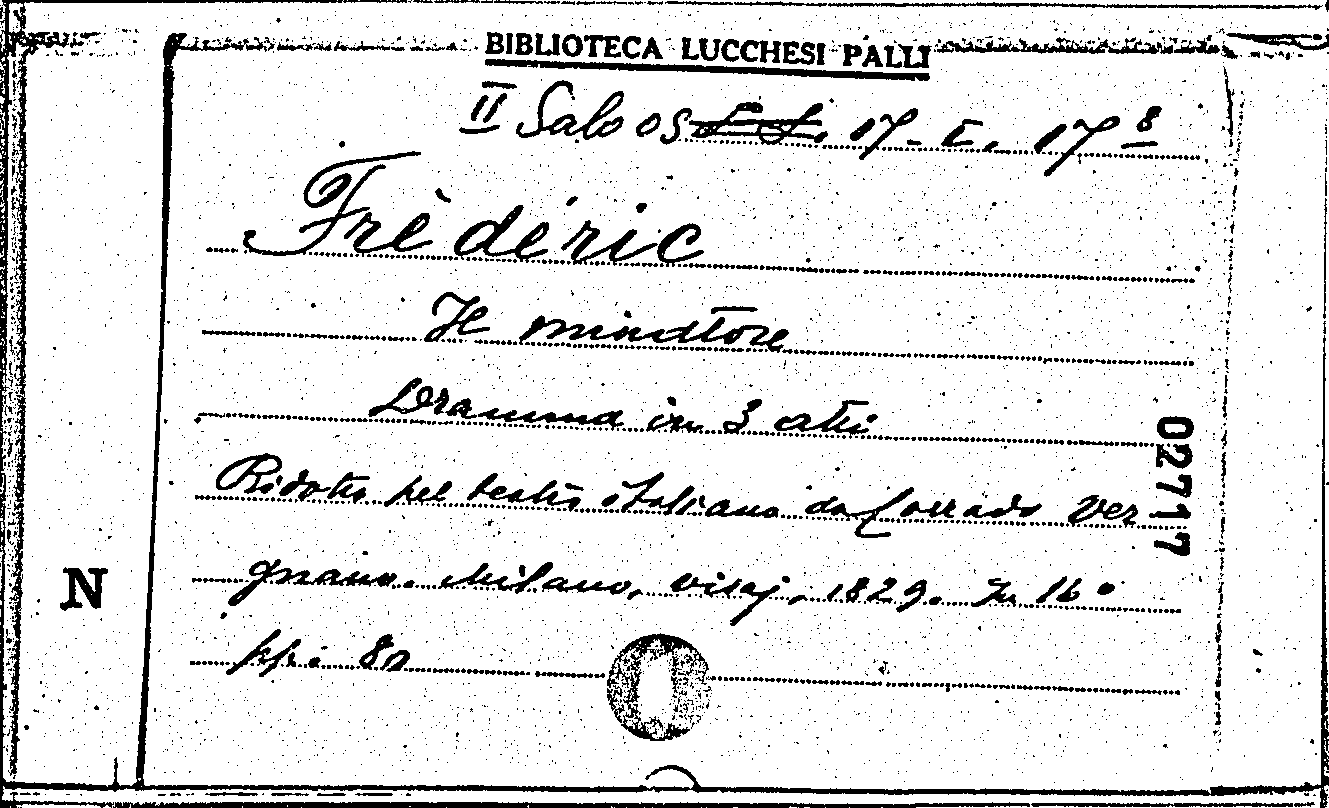 BIBLIOTECA LUCCHESI PALLI
II Sala 17-I. 17 8
Frèdéric
Il minatore
Dramma in 3 atti
Ridotto pel teatro italiano da Corrado Ver
gnano. Milano, Visaj, 1829. In 16°
pp. 80
02717
N